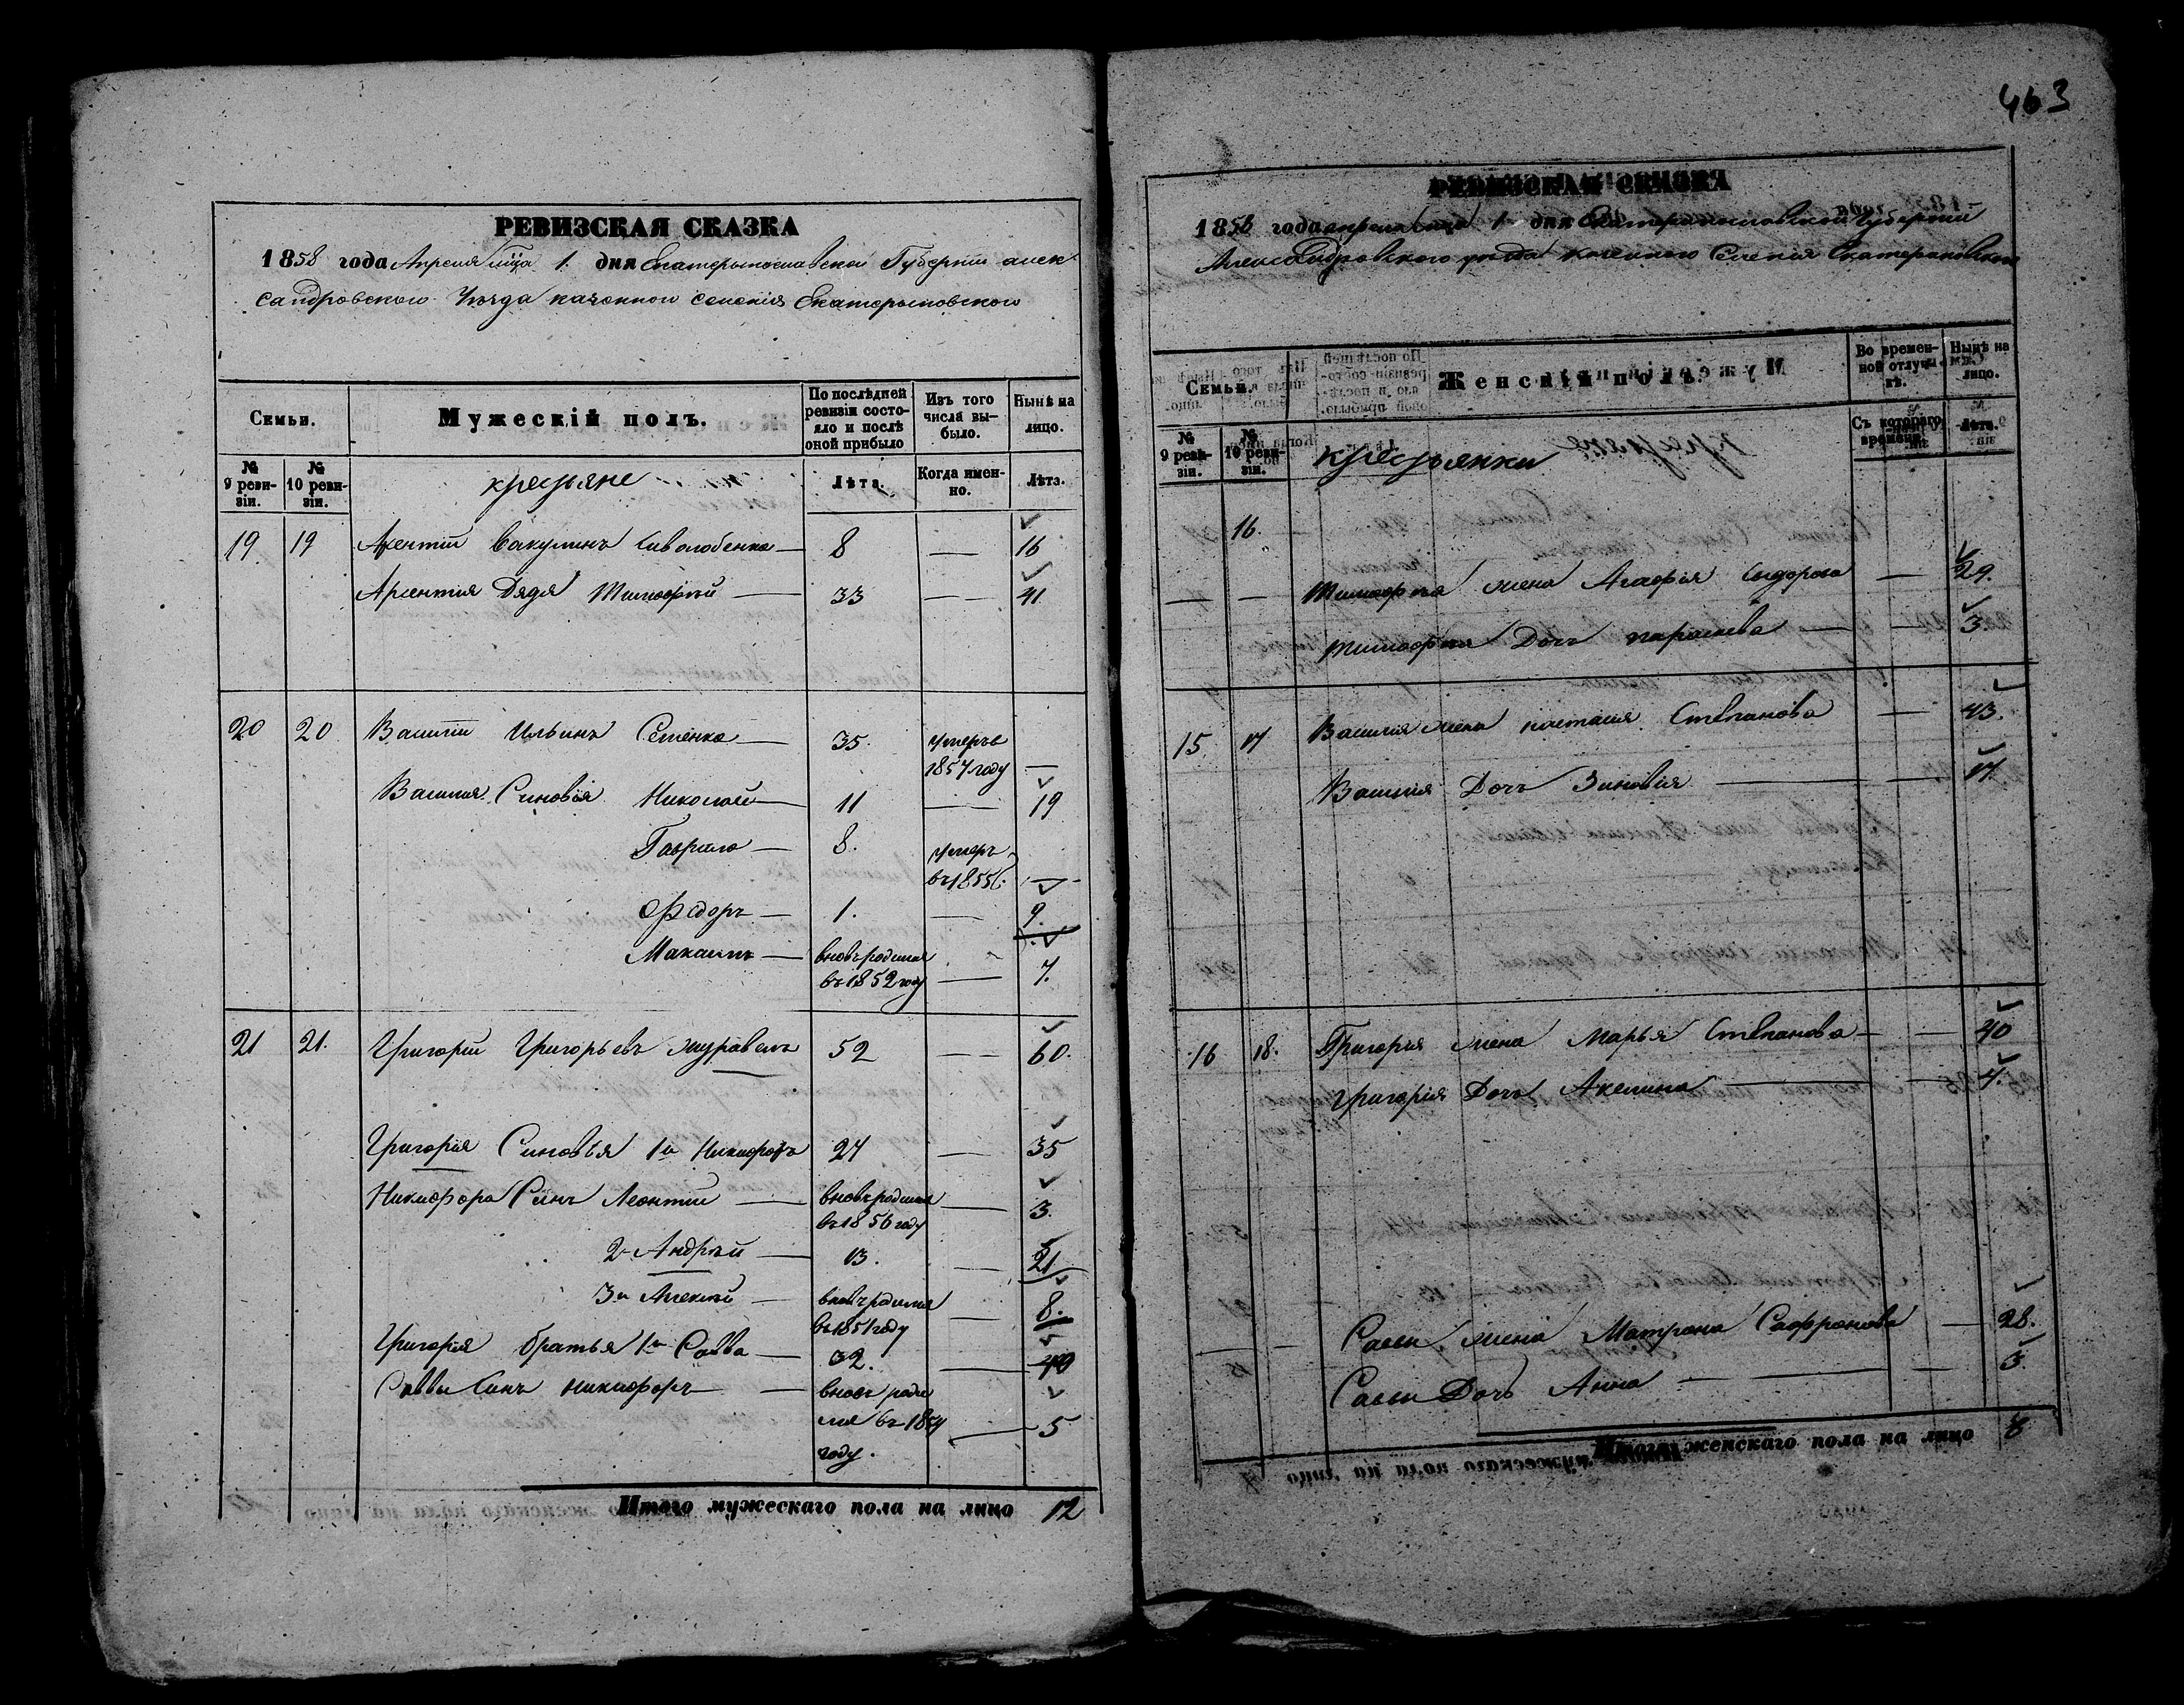 РЕВИЗСКАЯ СКАЗКА
1858 года Апреля мца 1. дня Екатерынославской Губернии алек
сандровского Уезда казенного селения Екатерыновского
Семьи.
Мужескій полъ.
По послѣдней ревизіи состояло и послѣ оной прибыло
Изъ того числа выбыло.
Нынѣ на лицо.
№ 9 ревизіи.
№ 10 ревизіи.
крестьяне
Лѣта.
Когда именно.
Лѣта.
19 19 Арсентій Вакулинъ — 8 — 16
Арсентия Дядя Тимофей — 33 — 41
20 20 Василий Ильинъ Семенка — 35. умеръ в
1857 году —
Василия Синовья Николай — 11 — 19
Гаврило — 8. умеръ
въ 1855 —
Федоръ — 1. — 9.
Максимъ — вновь родился
въ 1852 году — 7.
21 21. Григорий Григорьевъ журавель 52 — 60.
Григория Синовья 1й Никифоръ 27 — 35
Никифора Синъ Леонтий — вновь родился
въ 1856 году — 3.
2й Андрей — 13. — 21
3й Алексей — вновь родился
въ 1851 году — 8.
Григория братья 1й Савва — 32. — 40
Саввы Синъ Никифоръ — вновь роди
лся въ 1854 — 5
году.
Итого мужескаго пола на лицо 12
463
РЕВИЗСКАЯ СКАЗКА
1858 года апреля мца 1 дня Екатеринославской Губернии
Александровского уезда казенного Селения Екатериновского
Семьи.
Женскій полъ.
Во временной отлучкѣ.
Нынѣ на лицо.
№ 9 ревизіи.
№ 10 ревизіи.
крестьянки
Съ котораго времени.
Лѣта.
16.
— — Тимофея жена Агафія Сидорова — 29.
Тимофея Дочь параскева — — 3.
15 17 Василия жена настасия Степанова — 43.
Василия Дочь Зиновия — — 17.
16 18. Григория жена Марья Степанова — — 40
Григорія Дочь Акелина — — 4.
— — Савы жена Матрона Сафронова — 28.
Савы Дочь Анна — — 3.
Итого женскаго пола на лицо 8